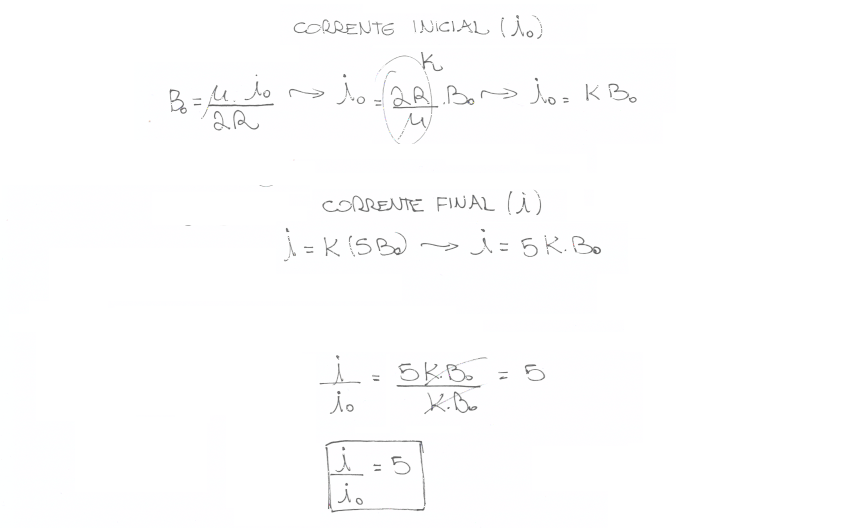 CORRENTE INICIAL (i₀)
K
B₀ = μ. i₀ / 2R ⤳ i₀ = 2R / μ . B₀ ⤳ i₀ = K B₀
CORRENTE FINAL (i)
i = K (5B₀) ⤳ i = 5 K. B₀
i / i₀ = 5K.B₀ / K.B₀ = 5
i / i₀ = 5